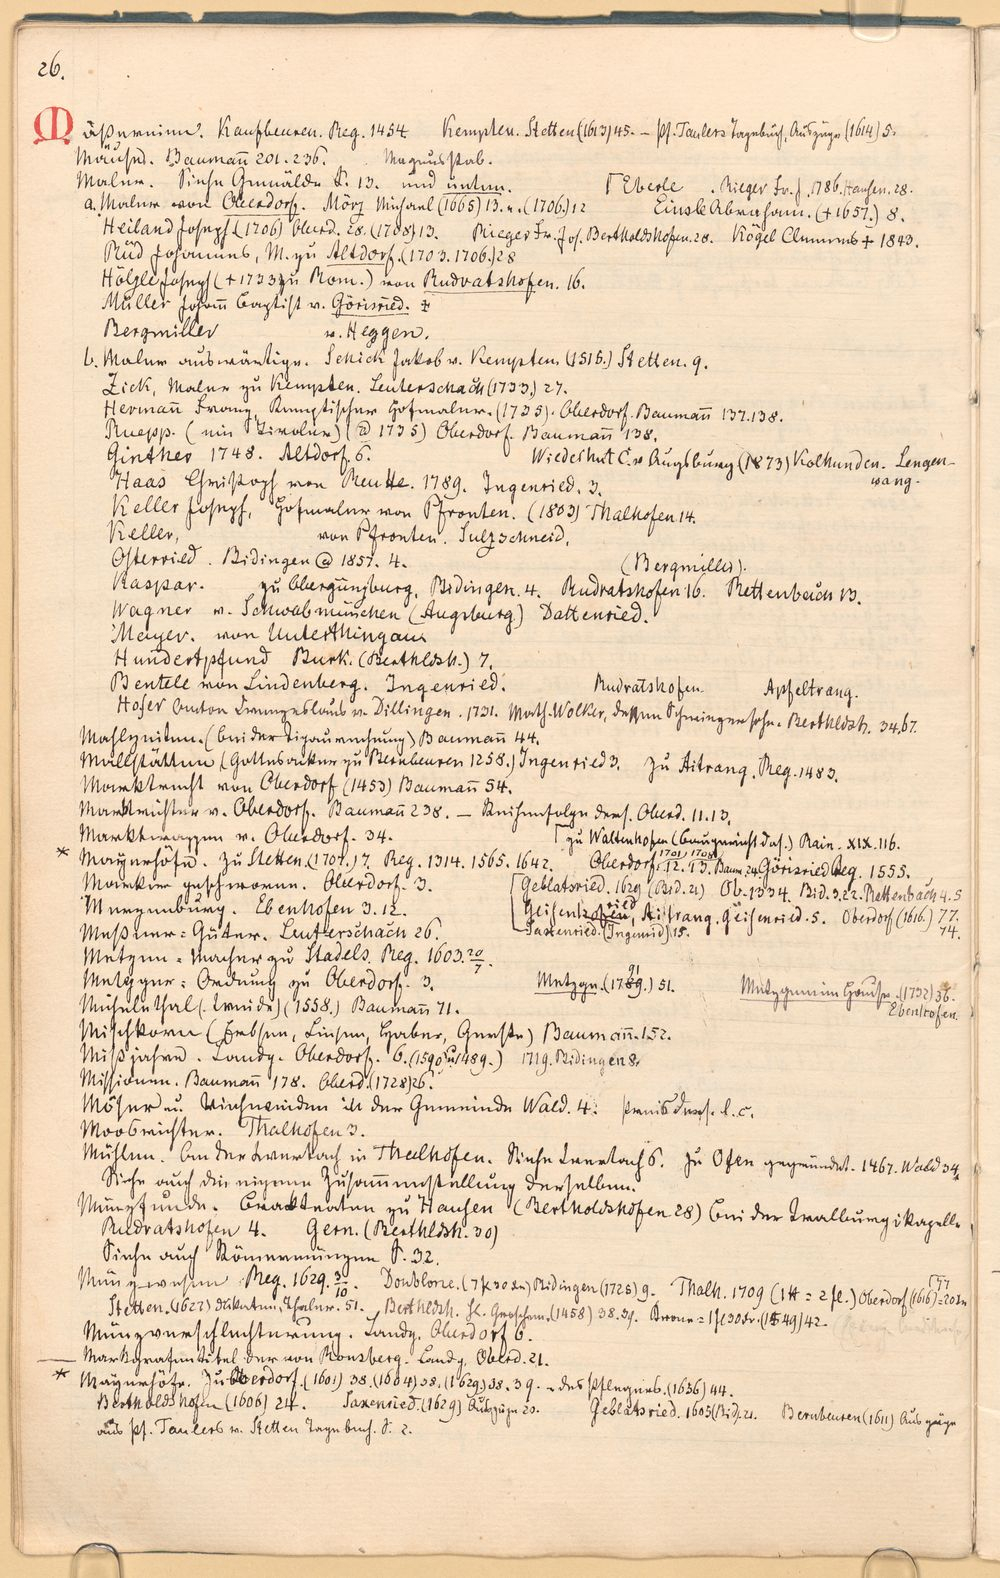 26.
Mäßereien. Kaufbeuren. Reg. 1454 Kempten. Stetten (1613) 45. – Pf. Taulers Tagebuch, Auszüge (1614) 5.
Mäuse. Baumañ 201. 236. Magnusstab.
Maler. Siehe Gemälde S. 13. und unten. Eberle. Rieger Fr. J. 1786. Hausen. 28.
a. Maler von Oberdorf. Mörz Michael (1665) 13. u. (1706.) 12 Einsle Abraham. (+ 1657.) 8.
Heiland Joseph (1706) Oberd. 28. (1708) 13. Rieger Fr. Jos. Bertholdshofen. 28. Kögel Clemens + 1843.
Rüd Johannes, M. zu Altdorf. (1703. 1706.) 28
Hölzle Joseph (+ 1733 zu Rom.) von Rudratshofen. 16.
Müller Johañ Baptist v. Görisried. +
Bergmiller v. Heggen.
b. Maler auswärtige. Schick Jakob v. Kempten. (1515.) Stetten. 9.
Zick, Maler zu Kempten. Leuterschach (1733.) 27.
Hermañ Franz, Kemptischer Hofmaler. (1735). Oberdorf. Baumañ 137. 138.
Ruepp. (ein Tiroler) (@ 1735) Oberdorf. Baumañ 138.
Ginther 1748. Altdorf 6. Wiedeshut C. v Augsburg (1873) Kolhunden. Lengen-
wang.
Haas Christoph von Reutte. 1789. Ingenried. 3.
Keller Joseph, Hofmaler von Pfronten. (1803) Thalhofen 14.
Keller, von Pfronten. Sulzschneid.
Osterried. Bidingen @ 1857. 4. (Bergmiller).
Kaspar. zu Obergünzburg. Bidingen. 4. Rudratshofen 16. Rettenbach 13.
Wagner v. Schwabmünchen (Augsburg) Dattenried.
Mayer. von Unterthingau
Hundertpfund Burk. (Bertholdsh.) 7.
Bentele von Lindenberg. Ingenried. Rudratshofen. Apfeltrang.
Hofer Anton Franzeslaus v. Dillingen. 1731. Math. Wolker, dessen Schwiegersohn. Bertholdsh. 34, 67.
Mahlzeiten. (bei der Baumañ 44.
Mallstätten (Gottesacker zu Bernbeuren 1258.) Ingenried 3. zu Aitrang. Reg. 1483.
Marktrecht von Oberdorf (1453) Baumañ 54.
Marktrichter v. Oberdorf. Baumañ 238. – Reihenfolge ders. Oberd. 11. 13.
Marktwappen v. Oberdorf. 34. zu Waltenhofen (Baugericht das.) Rain. XIX. 116.
* Mayerhöfe. zu Stetten. (1707.) 7. Reg. 1314. 1565. 1642. Oberdorf. 1701/12. 1708/13. Baum. 24 Görisried Reg. 1555.
Markier geschworene. Oberdorf. 3. Geblatsried. 1629 (Bid. 21) Ob. 1334. Bid. 3. 22. Rettenbach 4. 5
Mergenburg. Ebenhofen 3. 12. Geisenried, Aitrang. Geisenried. 5. Oberdorf (1616.) 77.
Meßner-Güter. Leuterschach 26. Saxenried. (Ingenried) 15. 74.
Metzen-Macher zu Stadels. Reg. 1603. 20/7.
Metzger-Ordnung zu Oberdorf. 3. Metzge. (1789.) 51. Metzgereien Häuser. (1732) 36.
Ebenhofen.
Michelsthal (. Weide) (1558.) Baumañ 71.
Mischkorn (Erbsen, Linsen, Haber, Gerste) Baumañ. 152.
Mißjahre. Landg. Oberdorf. 6. (1590 u. 1489.) 1719. Bidingen 8.
Missionen. Baumañ 178. Oberd. (1728) 26.
Möser u. Viehweiden in der Gemeinde Wald. 4. Preis ders. l. c.
Moosrichter. Thalhofen 3.
Mühlen. An der Wertach in Thalhofen. Siehe Wertach 6. zu Ofen gegründet. 1467. Wald 34.
Siehe auch die eigene Zusammenstellung derselben.
Münzfunde. Brakteaten zu Hausen (Bertholdshofen 28) bei der Walburgikapelle
Rudratshofen 4. Gern. (Bertholdsh. 30)
Siehe auch Römermünzen S. 32.
Münzwesen Reg. 1629. 3/10. Doublone. (7 fl 30 kr) Bidingen (1725) 9. Thalh. 1709 (1 ₶ = 2 fl.) Oberdorf (1616)
Stetten. (1627) Dukaten, Thaler. 51. Bertholdsh. Gr. Groschen. (1458) 38. 39. Krone = 1 fl 30 kr. (1549) 42.
Münzverschlechterung. Landg. Oberdorf 6.
Markgrafentitel der von Ronsberg. Landg. Oberd. 21.
* Mayerhöfe. Zu Oberdorf. (1601) 38. (1604) 38. (1629.) 38. 39. – des Pflegers. (1636) 44.
Bertholdshofen (1606) 24. Saxenried. (1629) Auszüge 20. Geblatsried. 1605 (Bid). 21. Bernbeuren (1611) Auszüge
aus Pf. Taulers v. Stetten Tagebuch. S. 2.